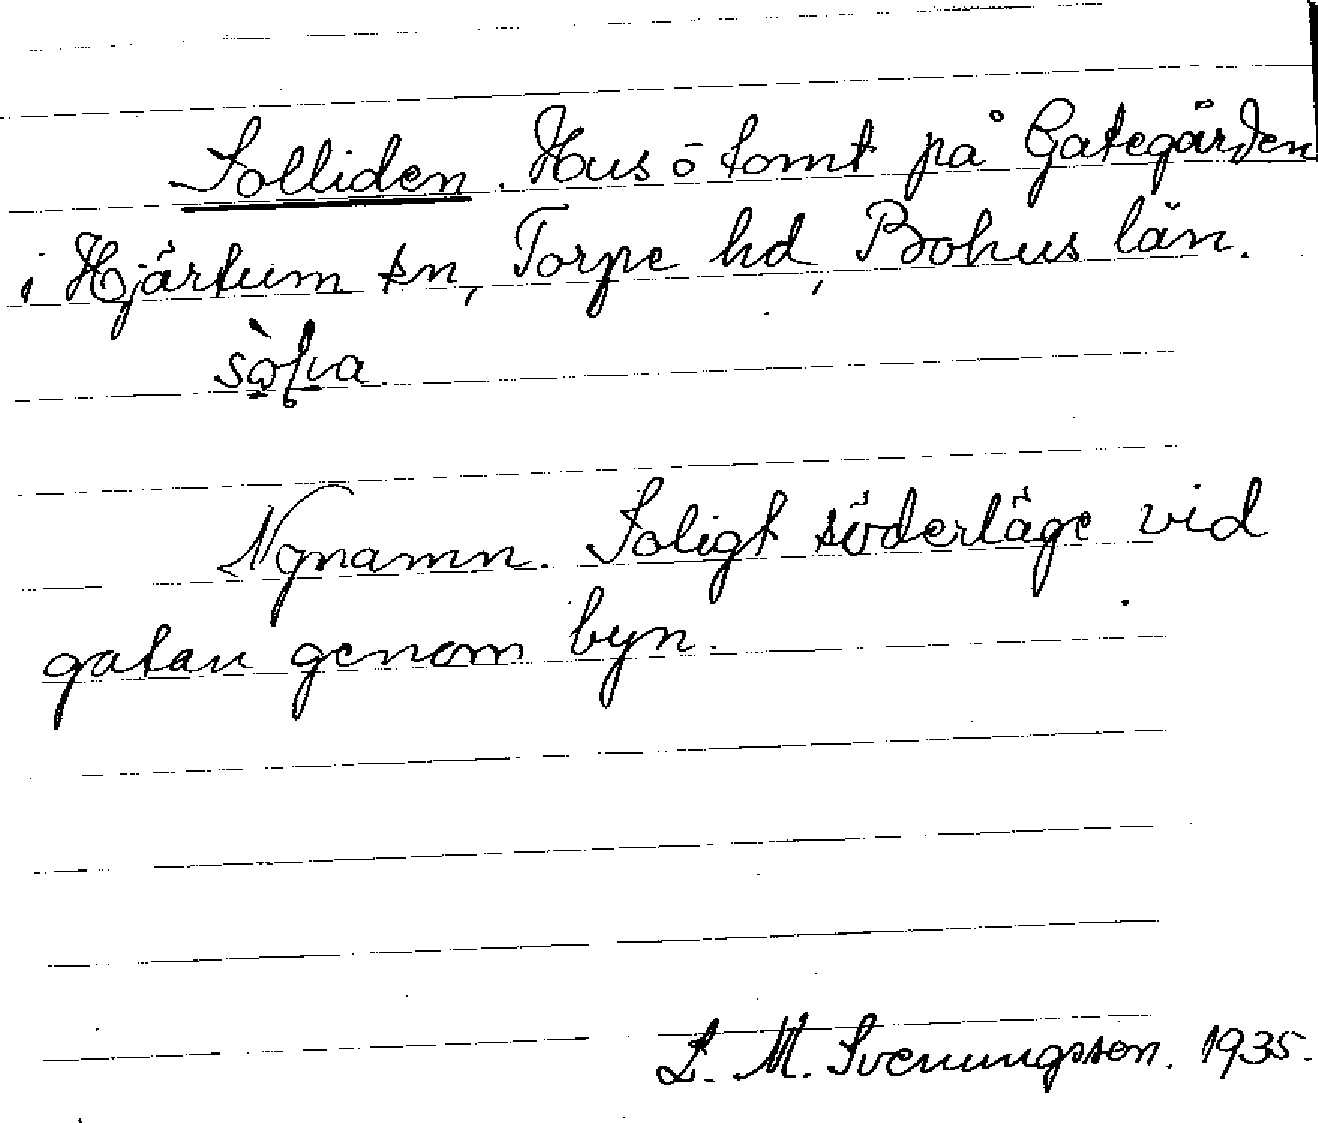 Solliden. Hus o tomt på Gategården
i Hjärtum sn, Torpe hd, Bohus län.
Nynamn. Soligt söderläge vid
gatan genom byn.
S. M. Svenungsson. 1935.